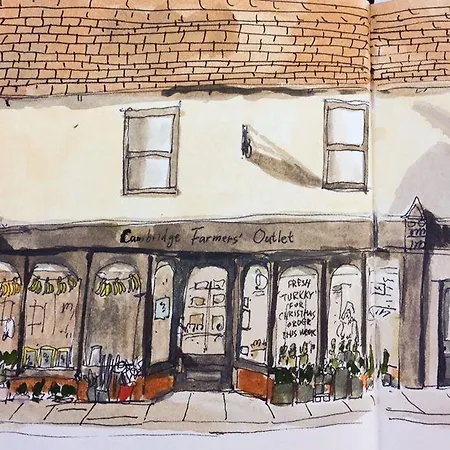 Cambridge Farmers' Outlet
FRESH
TURKEY
FOR
CHRISTMAS
ORDER
THIS WEEK